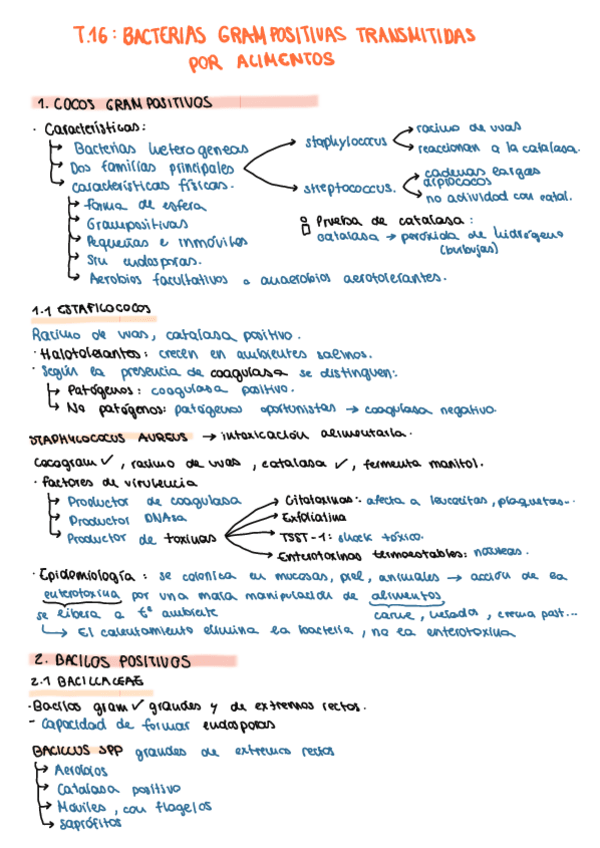 T.16: BACTERIAS GRAM POSITIVAS TRANSMITIDAS
POR ALIMENTOS
1. COCOS GRAM POSITIVOS
· Características:
→ Bacterias heterogeneas
→ Dos familias principales
→ staphylococcus → racimo de uvas
→ reaccionan a la catalasa.
→ streptococcus. → cadenas largas
diplococos
→ no actividad con catal.
→ características físicas.
→ forma de esfera
→ Grampositivas
→ Pequeñas e inmóviles
→ Sin endosporas.
→ Aerobios facultativos o anaerobios aerotolerantes.
Prueba de catalasa:
catalasa → peróxido de hidrógeno
(burbujas)
1.1 ESTAFILOCOCOS
Racimo de uvas, catalasa positivo.
· Halotolerantes: crecen en ambientes salinos.
· Según la presencia de coagulasa se distinguen:
→ Patógenos: coagulasa positivo.
→ No patógenos: patógenos oportunistas → coagulasa negativo.
STAPHYLOCOCCUS AUREUS → intoxicación alimentaria.
Cocogram ✓, racimo de uvas, catalasa ✓, fermenta manitol.
· Factores de virulencia
→ Productor de coagulasa
→ Productor DNAsa
→ Productor de toxinas
→ Citotoxinas: afecta a leucocitas, plaquetas...
→ Exfoliativa
→ TSST-1: shock tóxico.
→ Enterotoxinas termoestables: nauseas.
· Epidemiología: se coloniza en mucosas, piel, animales → acción de la
enterotoxina por una mala manipulación de alimentos
se libera a tª ambiente carne, helados, crema past...
→ El calentamiento elimina la bacteria, no la enterotoxina
2. BACILOS POSITIVOS
2.1 BACILLACEAE
· Bacilos gram ✓ grandes y de extremos rectos.
- Capacidad de formar endosporas
BACILLUS SPP grandes de extremos rectos
→ Aerobios
→ Catalasa positivo
→ Móviles, con flagelos
→ saprófitos